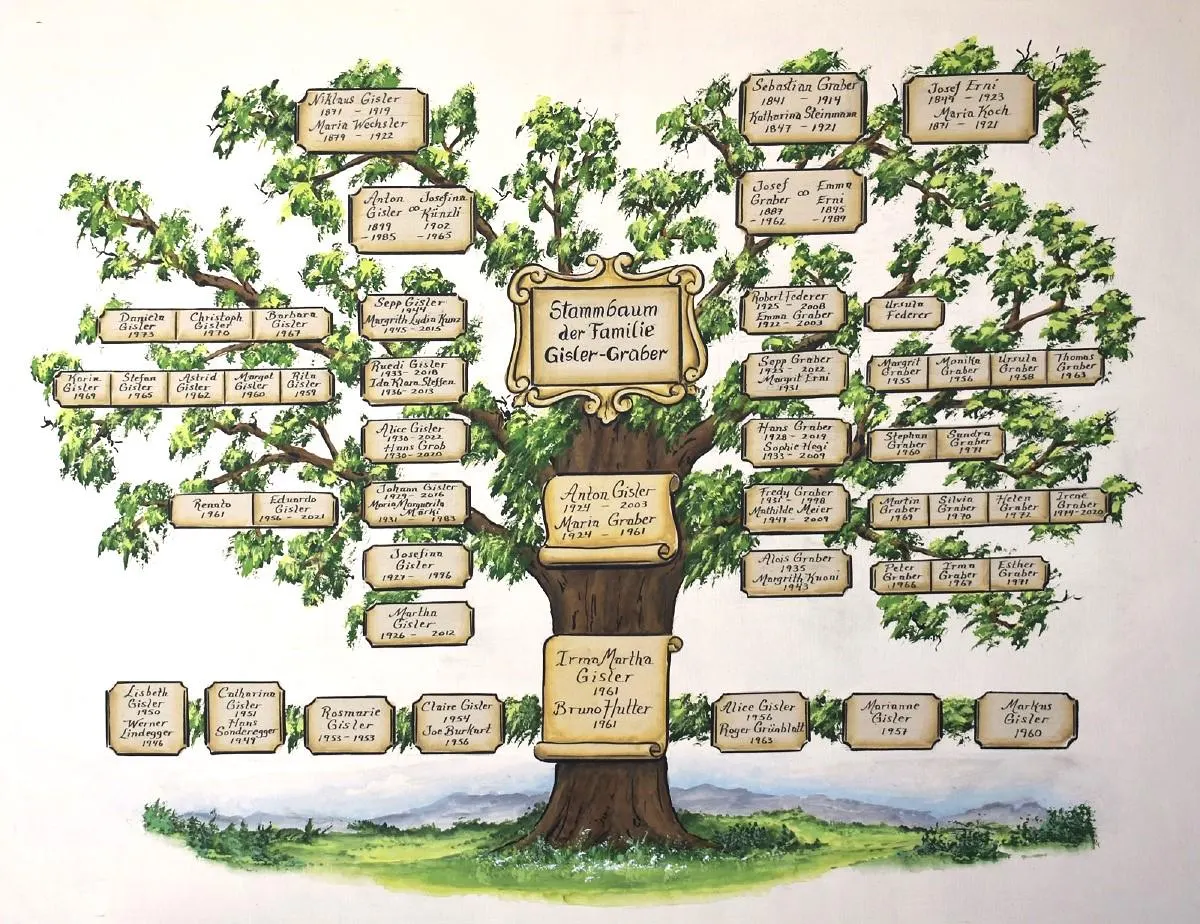 Niklaus Gisler
1871 - 1919
Maria Wechsler
1879 - 1922
Sebastian Graber
1841 - 1914
Katharina Steinmann
1847 - 1921
Josef Erni
1849 - 1923
Maria Koch
1871 - 1921
Anton ∞ Josefina
Gisler Künzli
1899 1902
- 1985 - 1965
Josef ∞ Emma
Graber Erni
1887 1895
- 1962 - 1989
Stammbaum
der Familie
Gisler-Graber
Daniela
Gisler
1973
Christoph
Gisler
1970
Barbara
Gisler
1967
Sepp Gisler
1944
Margrith Lydia Kunz
1945 - 2015
Karin
Gisler
1969
Stefan
Gisler
1965
Astrid
Gisler
1962
Margot
Gisler
1960
Rita
Gisler
1959
Ruedi Gisler
1933 - 2018
Ida Klara Steffen
1936 - 2013
Alice Gisler
1930 - 2022
Hans Grob
1930 - 2020
Renato
1961
Eduardo
Gisler
1956 - 2021
Johann Gisler
1929 - 2016
Maria Margverita
Märki
1931 1983
Josefina
Gisler
1927 - 1996
Martha
Gisler
1926 - 2012
Robert Federer
1925 - 2008
Emma Graber
1922 - 2003
Ursula
Federer
Sepp Graber
1925 - 2022
Margrit Erni
1931
Margrit
Graber
1955
Monika
Graber
1956
Ursula
Graber
1958
Thomas
Graber
1963
Hans Graber
1928 - 2019
Sophie Hegi
1933 - 2009
Stephan
Graber
1960
Sandra
Graber
1971
Fredy Graber
1931 - 1998
Mathilde Meier
1947 - 2009
Martin
Graber
1969
Silvia
Graber
1970
Helen
Graber
1972
Irene
Graber
1974-2020
Alois Graber
1935
Margrith Kuoni
1943
Peter
Graber
1966
Irma
Graber
1967
Esther
Graber
1971
Anton Gisler
1924 - 2003
Maria Graber
1924 - 1961
Irma Martha
Gisler
1961
Bruno Hutter
1961
Lisbeth
Gisler
1950
Werner
Lindegger
1946
Catharina
Gisler
1951
Hans
Sonderegger
1949
Rosmarie
Gisler
1953 - 1953
Claire Gisler
1954
Joe Burkart
1956
Alice Gisler
1956
Roger Grünblatt
1963
Marianne
Gisler
1957
Markus
Gisler
1960